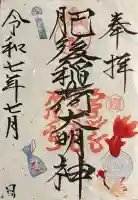 奉拝
肥後稲荷大明神
令和七年七月
日